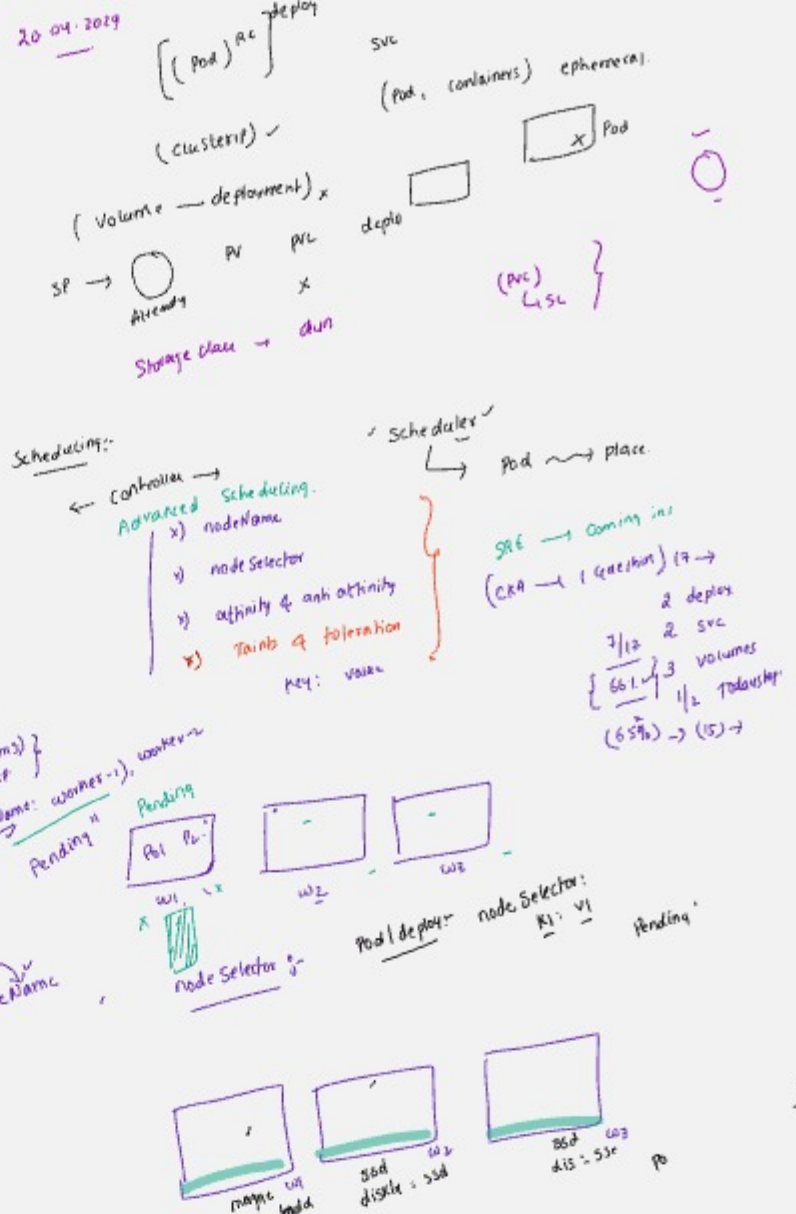 20 04.2024
[(Pod)^RC]^deploy
svc
(Pod, containers) ephemeral.
(ClusterIP) ✓
x Pod
(Volume — deployment) x
SP → Already
PV PVC deplo
x
(PVC)
↳ SC
Storage class →
Scheduling:-
✓ Scheduler ✓
↳ Pod → place.
← Controller →
Advanced Scheduling.
x) nodeName
x) nodeSelector
x) affinity & anti affinity
x) Taints & toleration
Key: value
SRE → Coming in:
(CKA → 1 Question) 17 →
2 deploy
7/17 2 svc
3 volumes
1/2
(65%) → (15) →
Name: worker-1), worker-2
Pending
Pending"
Po1 P2
W1
W2
W3
Name
node Selector :-
Pod | deploy:- node Selector:
K1: V1
Pending
W1
ssd W2
ssd W3
Po